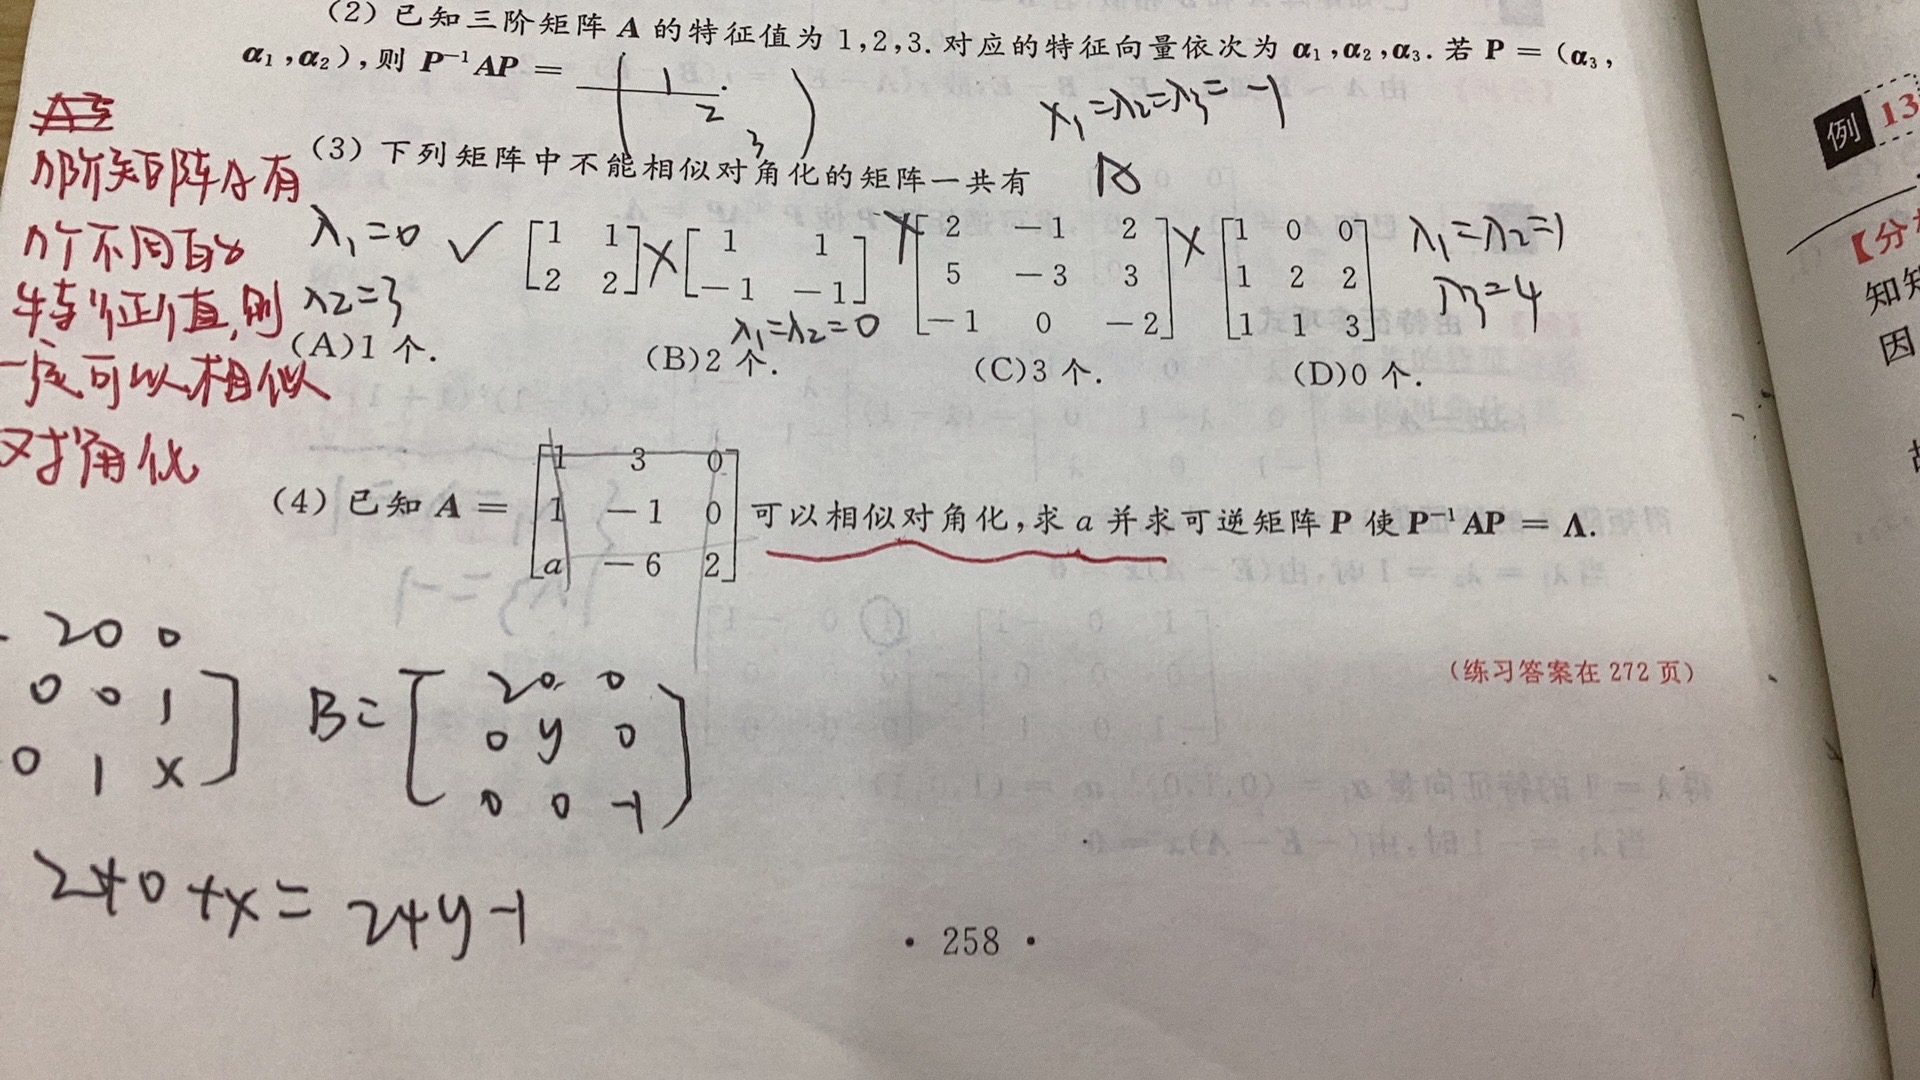 (2) 已知三阶矩阵 A 的特征值为 1,2,3. 对应的特征向量依次为 α₁,α₂,α₃. 若 P = (α₃,
α₁,α₂), 则 P⁻¹AP =
1
2
3
λ₁=λ₂=λ₃=-1
n阶矩阵A有
n个不同的
特征值,则
一定可以相似
对角化
(3) 下列矩阵中不能相似对角化的矩阵一共有
λ₁=0
λ2=3
✓ [1 1
2 2]
× [1 1
-1 -1]
λ₁=λ₂=0
× [2 -1 2
5 -3 3
-1 0 -2]
× [1 0 0
1 2 2
1 1 3]
λ₁=λ₂=1
λ3=4
(A)1 个.
(B)2 个.
(C)3 个.
(D)0 个.
(4) 已知 A = [1 3 0
1 -1 0
a -6 2] 可以相似对角化,求 a 并求可逆矩阵 P 使 P⁻¹AP = Λ.
(练习答案在 272 页)
2 0 0
0 0 1
0 1 x
B=[2 0 0
0 y 0
0 0 -1]
2+0+x=2+y-1
· 258 ·
例 13
【分
知
因